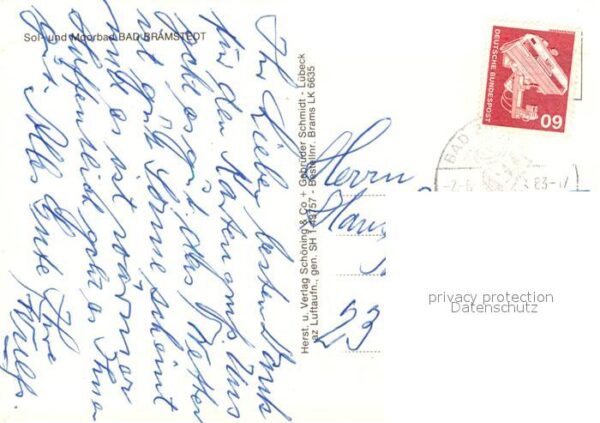 Sol- und Moorbad BAD BRAMSTEDT
Ihr Lieben, besten Dank
für den Kartengruß. Uns
geht es gut, das Wetter
ist gut, Sonne scheint
und es ist wärmer
Hoffentlich geht es Ihnen
gut. Alles Gute Ihre
Herst. u. Verlag Schöning & Co + Gebrüder Schmidt - Lübeck
az Luftaufn., gen. SH 1-49757 - Bestellnr. Brams LK 6635
DEUTSCHE BUNDESPOST
60
BAD
Herrn
Hans
23
privacy protection
Datenschutz